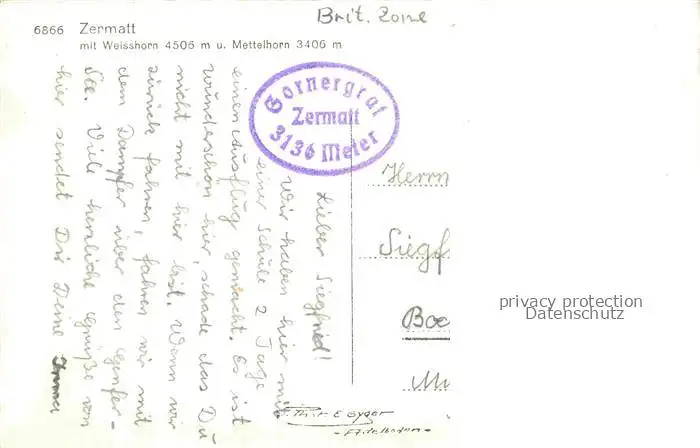 Brit. Zone
6866 Zermatt
mit Weisshorn 4506 m u. Mettelhorn 3406 m
Gornergrat
Zermatt
3136 Meter
Lieber Siegfried!
Wir haben hier mit
einer Schule 2 Tage
einen Ausflug gemacht. Es ist
wunderschön hier, schade das Du
nicht mit hier bist. Wenn wir
zurück fahren, fahren wir mit
dem Dampfer über den Genfer-
See. Viele herzliche Grüße von
hier sendet Dir Deine
Herrn
Siegf
Boe
privacy protection
Datenschutz
E Gyger
- Adelboden -